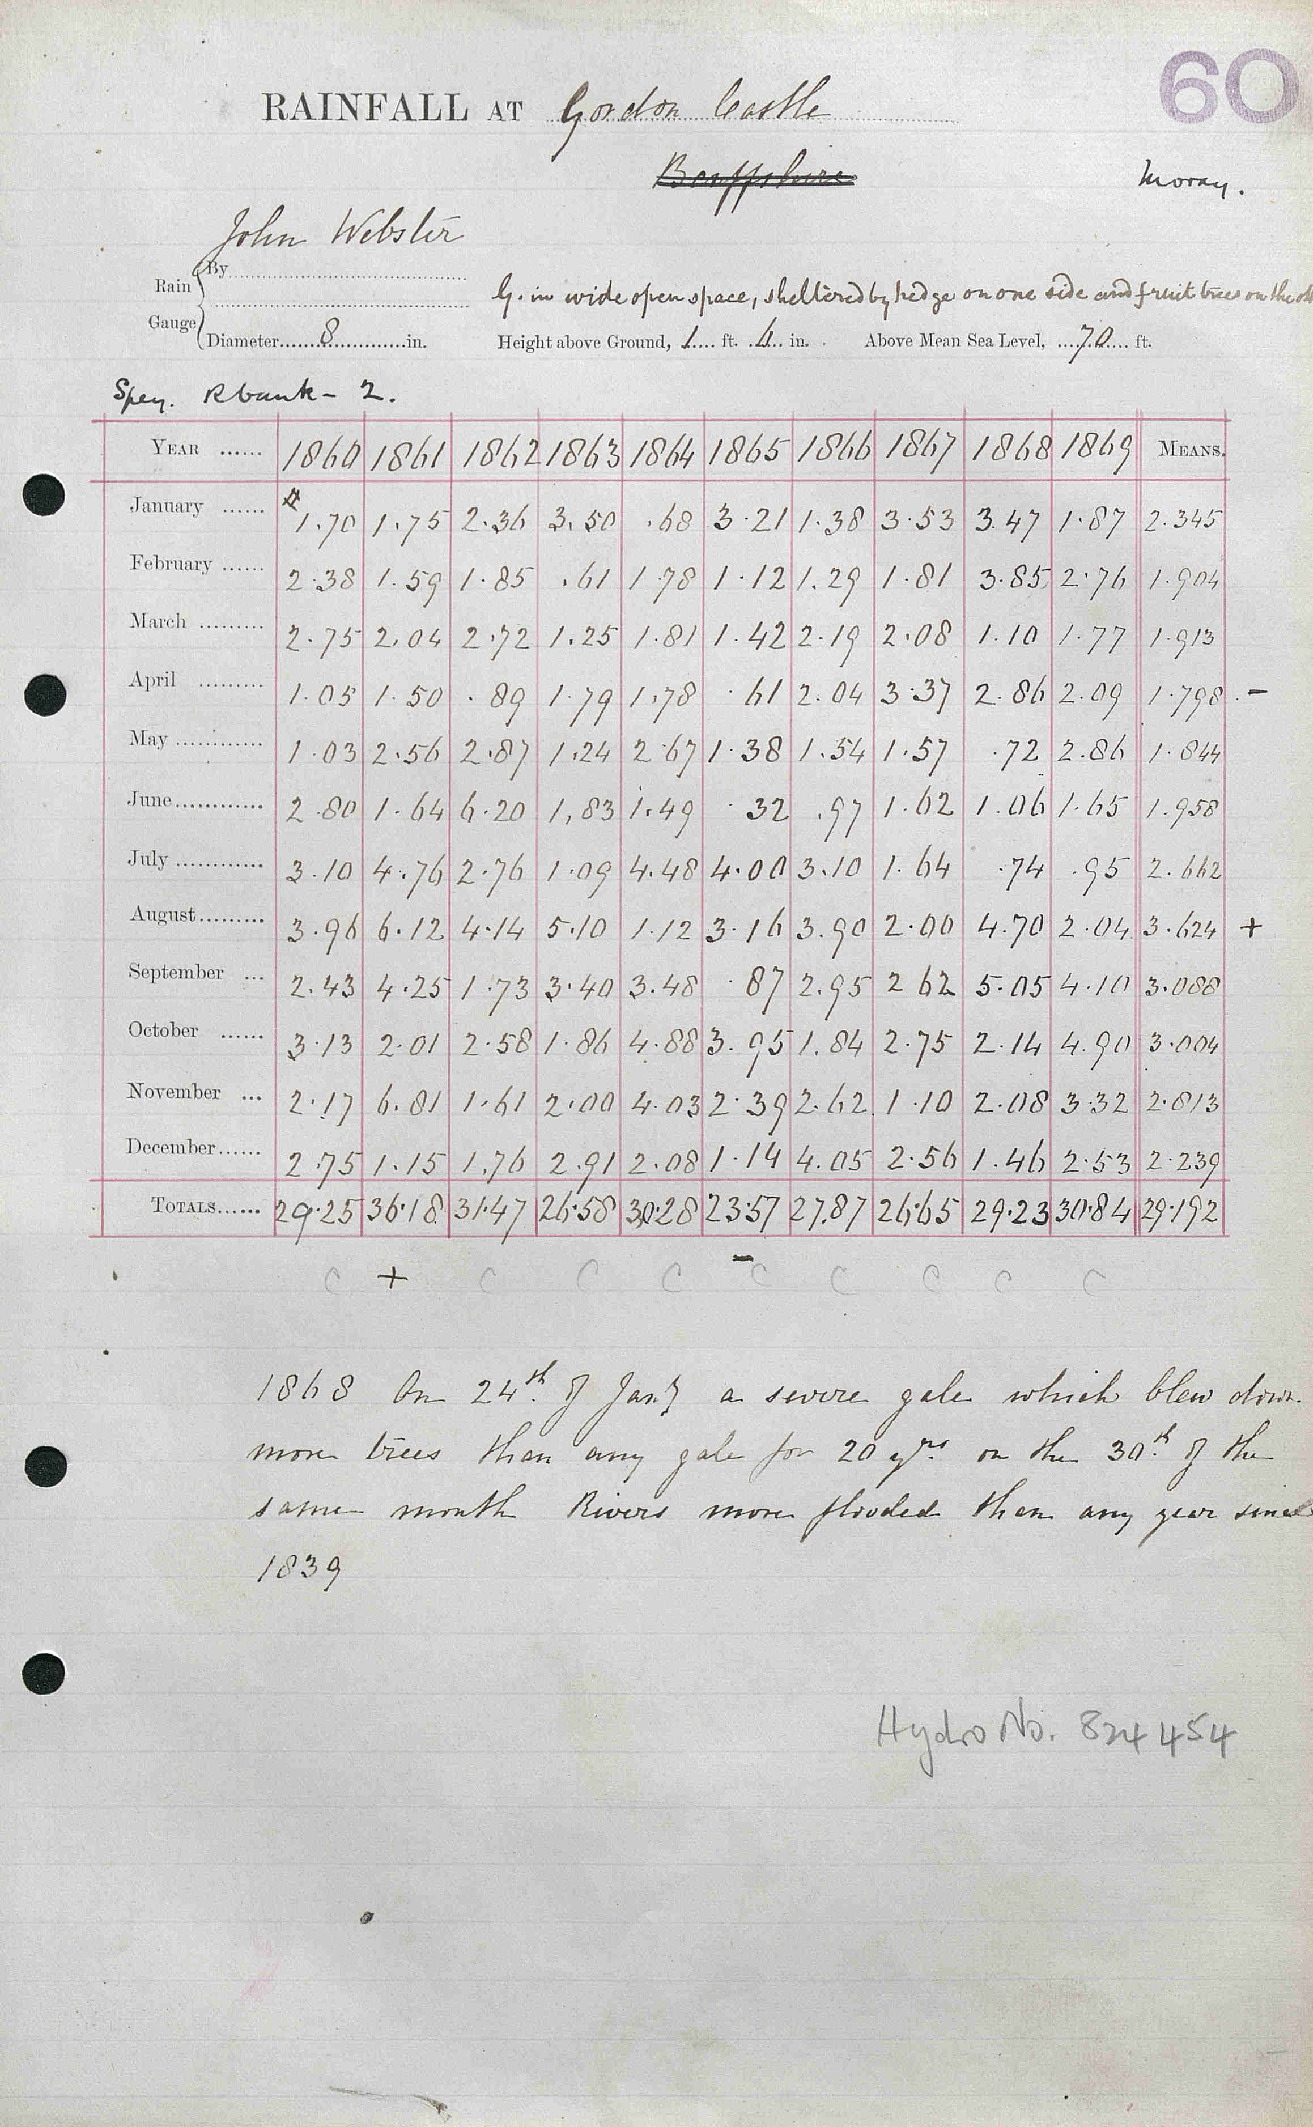 60
RAINFALL AT Gordon Castle
Banffshire
Moray.
John Webster
Rain Gauge
By
G. in wide open space, sheltered by hedge on one side and fruit trees on the
Diameter 8 in. Height above Ground, 1 ft. 4 in. Above Mean Sea Level, 70 ft.
Spey. R bank - 2.
YEAR ...... 1860 1861 1862 1863 1864 1865 1866 1867 1868 1869 MEANS.
January ...... 1.70 1.75 2.36 3.50 .68 3.21 1.38 3.53 3.47 1.87 2.345
February ...... 2.38 1.59 1.85 .61 1.78 1.12 1.29 1.81 3.85 2.76 1.904
March ......... 2.75 2.04 2.72 1.25 1.81 1.42 2.19 2.08 1.10 1.77 1.913
April ......... 1.05 1.50 .89 1.79 1.78 .61 2.04 3.37 2.86 2.09 1.798 -
May ............ 1.03 2.56 2.87 1.24 2.67 1.38 1.54 1.57 .72 2.86 1.844
June ............ 2.80 1.64 6.20 1.83 1.49 .32 .97 1.62 1.06 1.65 1.958
July ............ 3.10 4.76 2.76 1.09 4.48 4.00 3.10 1.64 .74 .95 2.662
August ......... 3.96 6.12 4.14 5.10 1.12 3.16 3.90 2.00 4.70 2.04 3.624 +
September ... 2.43 4.25 1.73 3.40 3.48 .87 2.95 2.62 5.05 4.10 3.088
October ...... 3.13 2.01 2.58 1.86 4.88 3.95 1.84 2.75 2.14 4.90 3.004
November ... 2.17 6.81 1.61 2.00 4.03 2.39 2.62 1.10 2.08 3.32 2.813
December ...... 2.75 1.15 1.76 2.91 2.08 1.14 4.05 2.56 1.46 2.53 2.239
TOTALS ...... 29.25 36.18 31.47 26.58 30.28 23.57 27.87 26.65 29.23 30.84 29.192
C + C C C - C C C C C
1868 On 24th of Jany a severe gale which blew down
more trees than any gale for 20 yrs on the 30th of the
same month Rivers more flooded than any year since
1839
Hydro No. 824454